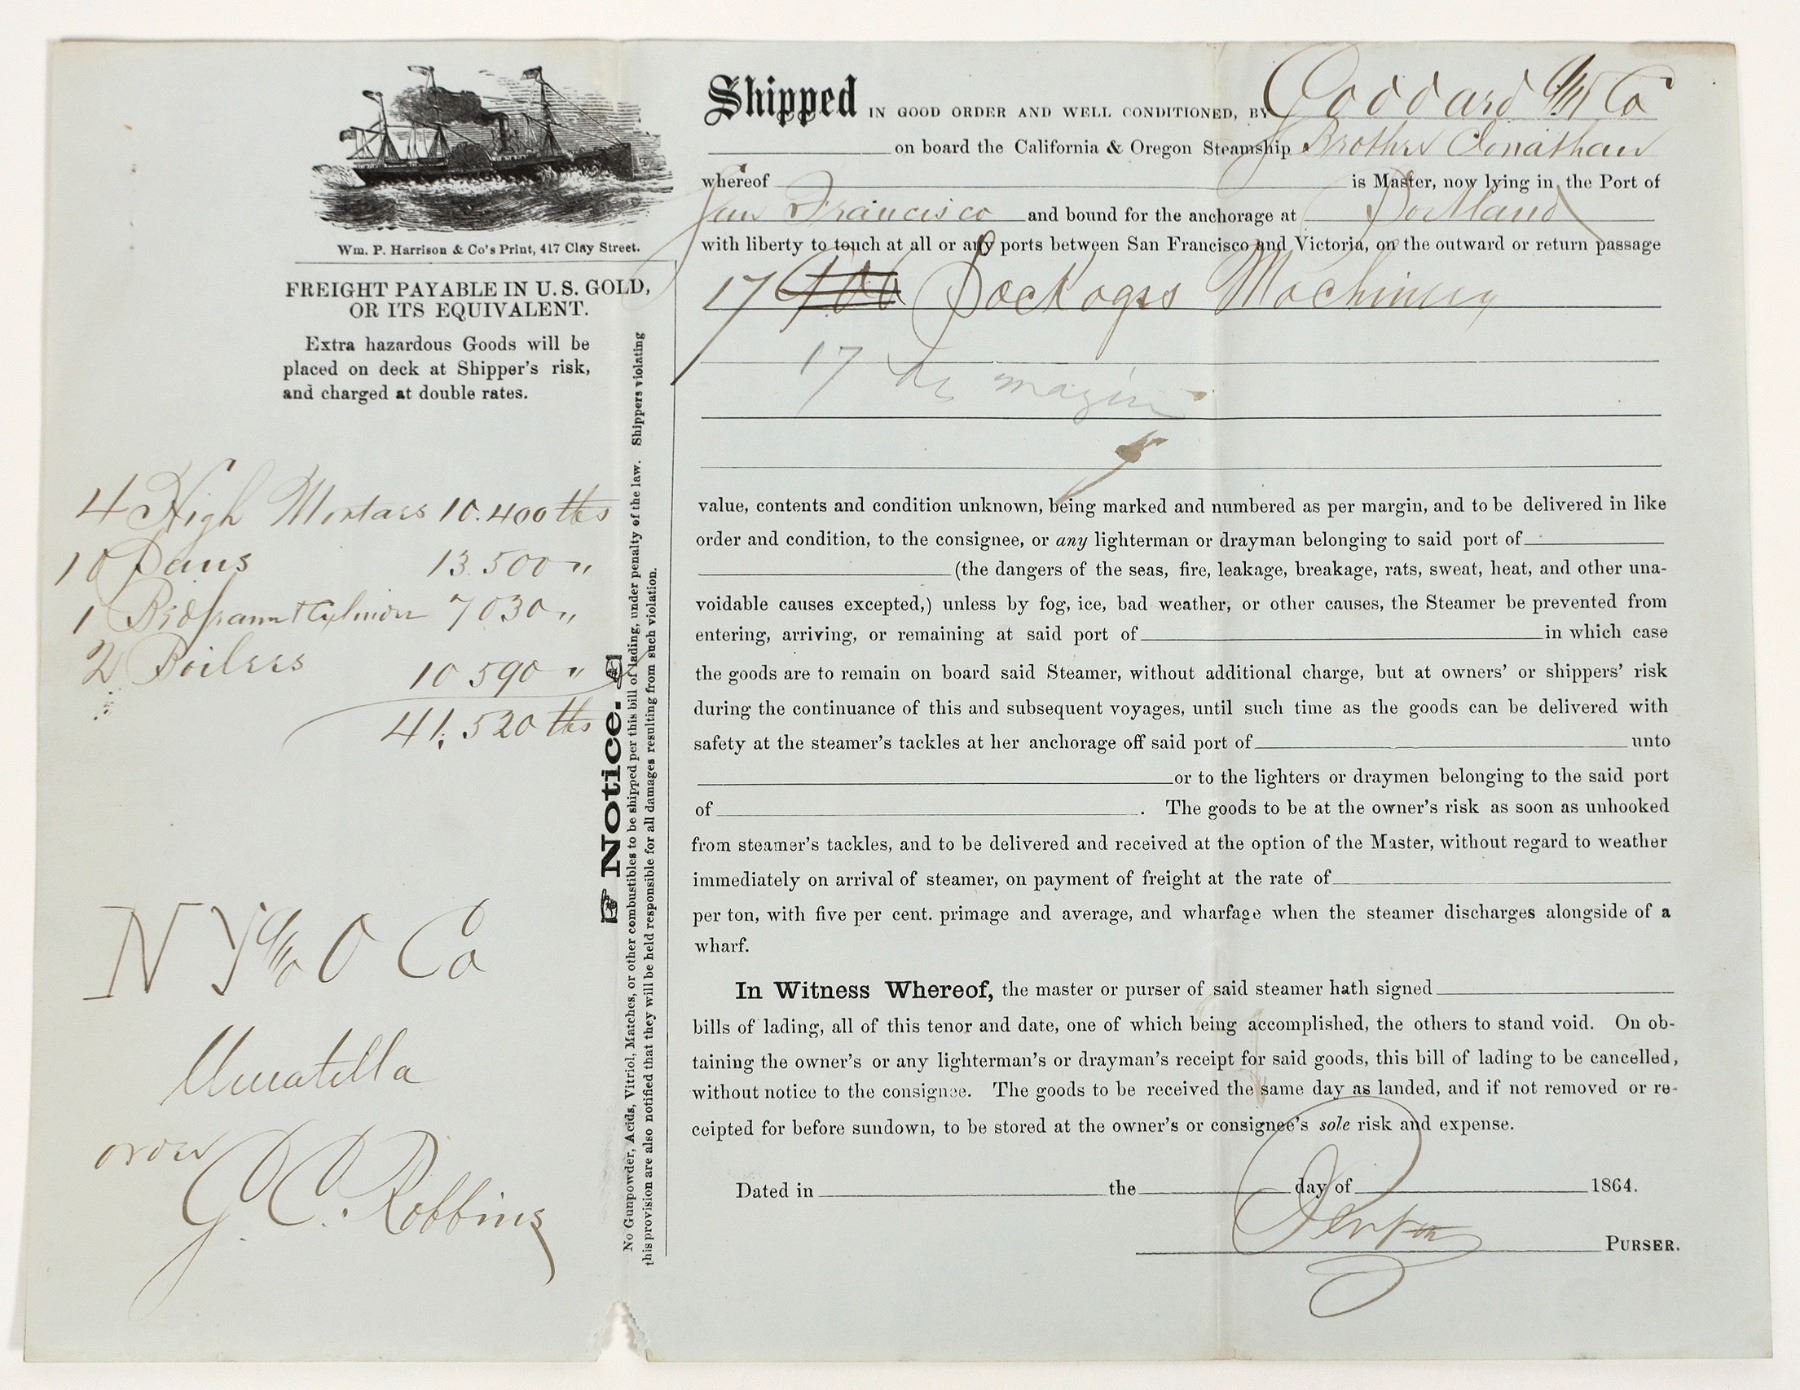 Wm. P. Harrison & Co's Print, 417 Clay Street.
FREIGHT PAYABLE IN U. S. GOLD,
OR ITS EQUIVALENT.
Extra hazardous Goods will be
placed on deck at Shipper's risk,
and charged at double rates.
4 High Mortars 10.400 lbs
10 Pans 13.500 "
1 Bedframe & Cylinder 7030 "
2 Boilers 10 590 "
41,520 lbs
N Y & O Co
Umatilla
order
J. C. Robbins
Notice.
No Gunpowder, Acids, Vitriol, Matches, or other combustibles to be shipped per this bill of lading, under penalty of the law. Shippers violating
this provision are also notified that they will be held responsible for all damages resulting from such violation.
Shipped IN GOOD ORDER AND WELL CONDITIONED, BY Goddard & Co
on board the California & Oregon Steamship Brother Jonathan
whereof is Master, now lying in the Port of
San Francisco and bound for the anchorage at Portland
with liberty to touch at all or any ports between San Francisco and Victoria, on the outward or return passage
17 Packages Machinery
17
value, contents and condition unknown, being marked and numbered as per margin, and to be delivered in like
order and condition, to the consignee, or any lighterman or drayman belonging to said port of
(the dangers of the seas, fire, leakage, breakage, rats, sweat, heat, and other una-
voidable causes excepted,) unless by fog, ice, bad weather, or other causes, the Steamer be prevented from
entering, arriving, or remaining at said port of in which case
the goods are to remain on board said Steamer, without additional charge, but at owners' or shippers' risk
during the continuance of this and subsequent voyages, until such time as the goods can be delivered with
safety at the steamer's tackles at her anchorage off said port of unto
or to the lighters or draymen belonging to the said port
of . The goods to be at the owner's risk as soon as unhooked
from steamer's tackles, and to be delivered and received at the option of the Master, without regard to weather
immediately on arrival of steamer, on payment of freight at the rate of
per ton, with five per cent. primage and average, and wharfage when the steamer discharges alongside of a
wharf.
In Witness Whereof, the master or purser of said steamer hath signed
bills of lading, all of this tenor and date, one of which being accomplished, the others to stand void. On ob-
taining the owner's or any lighterman's or drayman's receipt for said goods, this bill of lading to be cancelled,
without notice to the consignee. The goods to be received the same day as landed, and if not removed or re-
ceipted for before sundown, to be stored at the owner's or consignee's sole risk and expense.
Dated in the day of 1864.
PURSER.